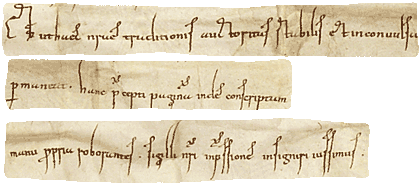 Et ut haec nr̄ae traditionis auctoritas stabilis et inconvulsa
p̄maneat. hanc p̄cepti paginā inde conscriptam
manu propria roborantes. sigilli nr̄i inp̄ssione insigniri iussimus.